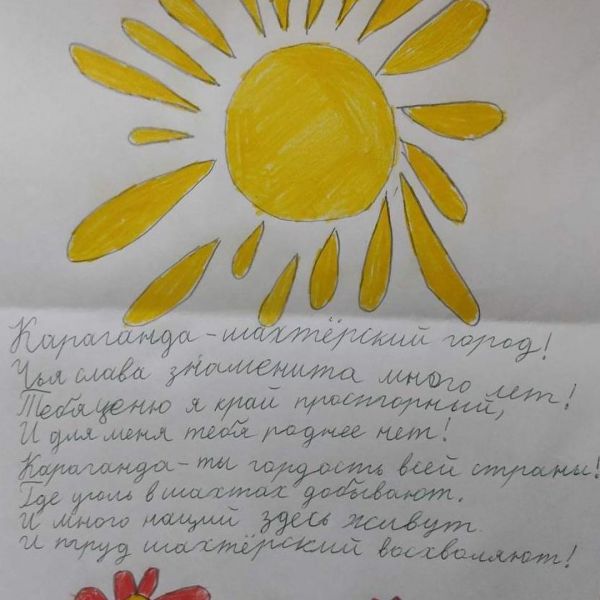 Караганда - шахтёрский город!
Чья слава знаменита много лет!
Тебя ценю я край просторный,
И для меня тебя роднее нет!
Караганда - ты гордость всей страны!
Где уголь в шахтах добывают.
И много наций здесь живут
И труд шахтёрский восхваляют!